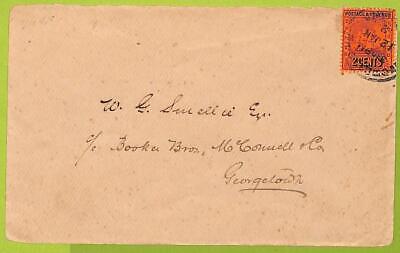 POSTAGE & REVENUE
12 JA
2 CENTS
W. G. Smellie Esq.
c/o Booker Bros, McConnell & Co
Georgetown